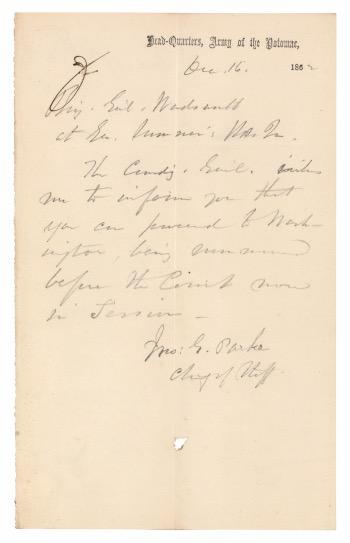 Head-Quarters, Army of the Potomac,
Dec. 16. 1862
Brig. Genl. Wadsworth
at Gen. Sumner's Hd. Qr.
The Comdg. Genl. wishes
me to inform you that
you can proceed to Wash-
ington, being summoned
before the Court now
in Session —
Jno: G. Parke
Chief of Staff.